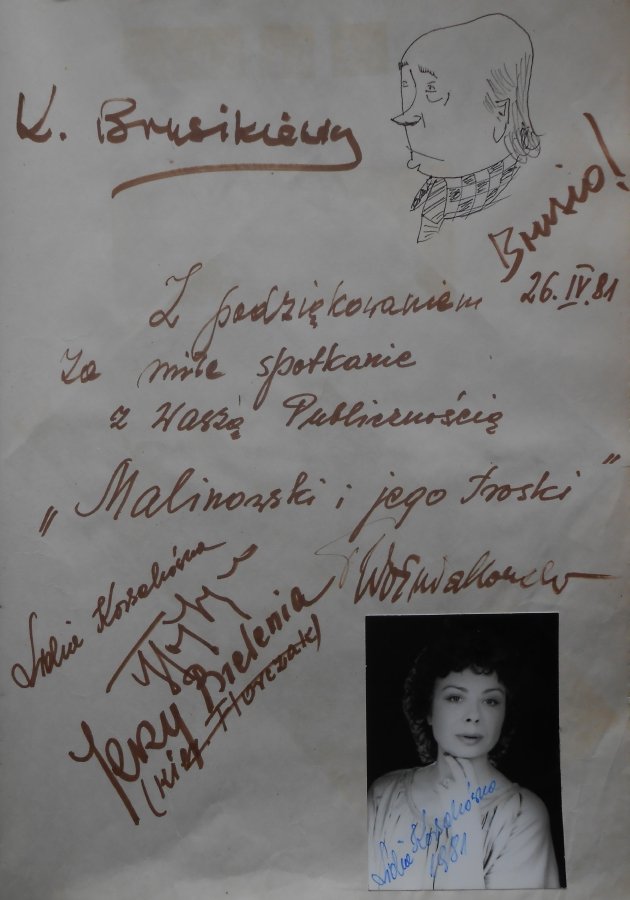 K. Brusikiewicz
Brusio!
26.IV.81
Z podziękowaniem
za miłe spotkanie
z Waszą Publicznością
„Malinowski i jego troski”
Lidia Korsakówna
Jerzy Bielenia
(kier.
Lidia Korsakówna
1981